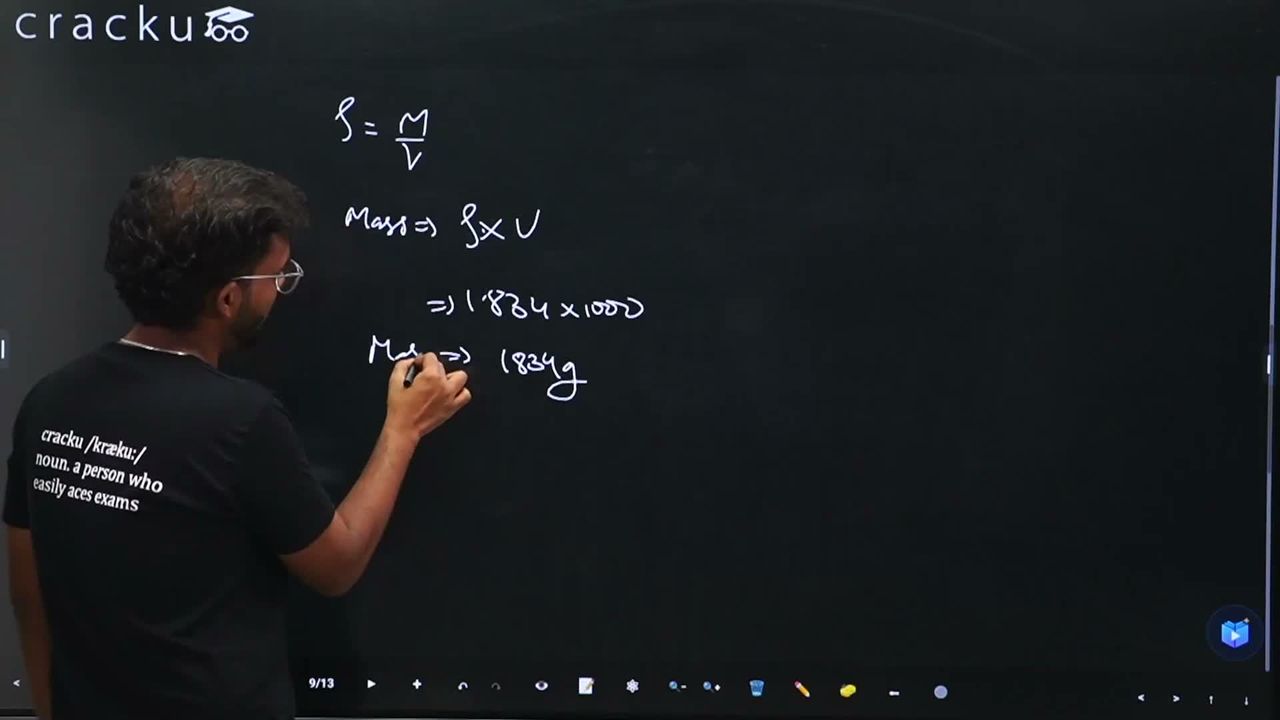 cracku
ρ = M/V
Mass ⇒ ρ × V
⇒ 1.834 × 1000
Mas ⇒ 1834g
cracku /kræku:/
noun. a person who
easily aces exams
9/13